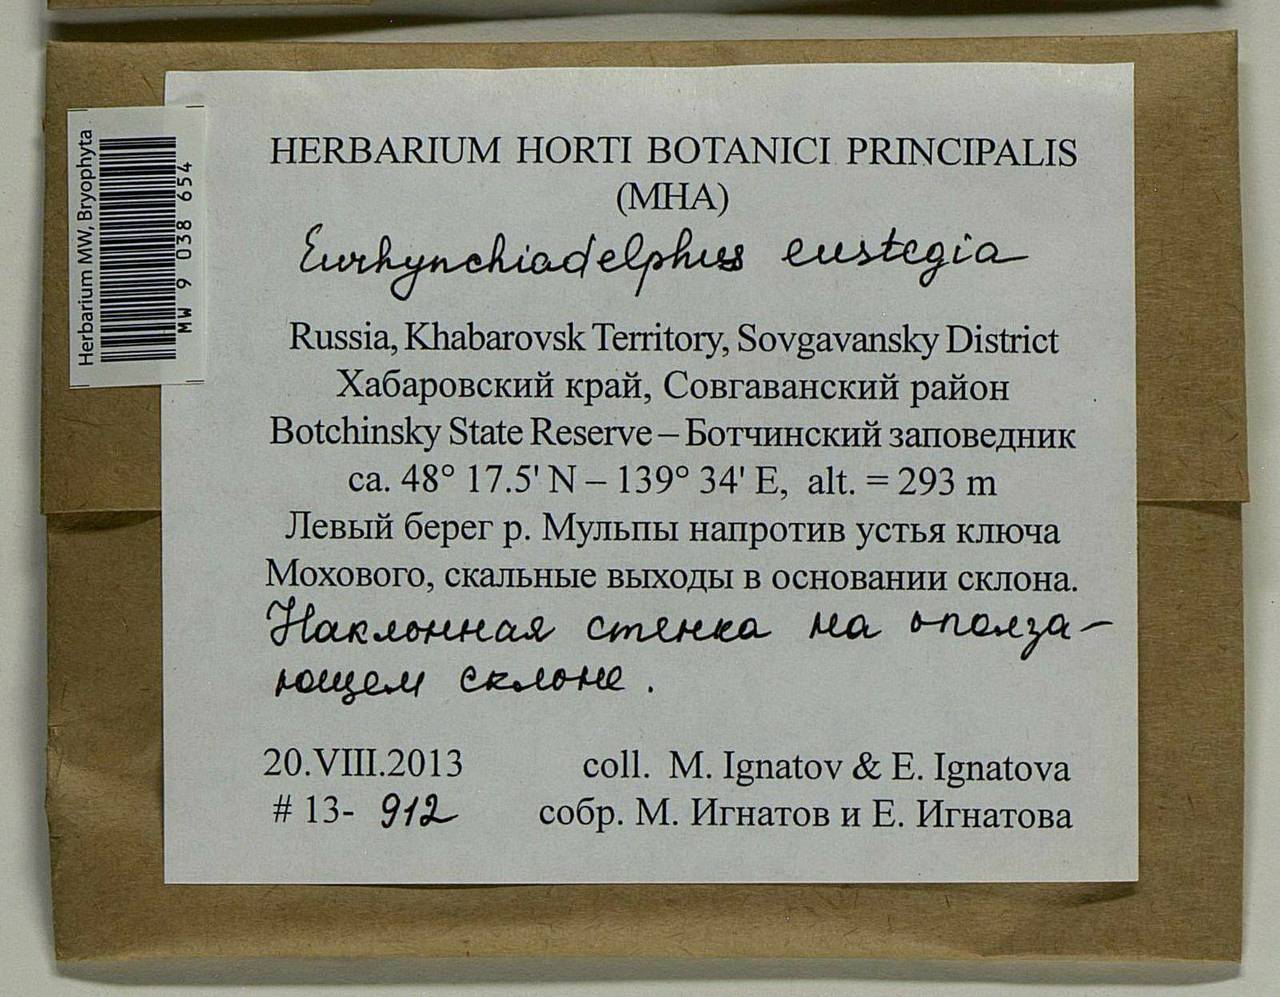 HERBARIUM HORTI BOTANICI PRINCIPALIS
(MHA)
Eurhynchiadelphus eustegia
Russia, Khabarovsk Territory, Sovgavansky District
Хабаровский край, Совгаванский район
Botchinsky State Reserve – Ботчинский заповедник
ca. 48° 17.5' N – 139° 34' E, alt. = 293 m
Левый берег р. Мульпы напротив устья ключа
Мохового, скальные выходы в основании склона.
Наклонная стенка на ополза-
ющем склоне.
20.VIII.2013 coll. M. Ignatov & E. Ignatova
# 13- 912 собр. М. Игнатов и Е. Игнатова
Herbarium MW, Bryophyta
MW 9 038 654